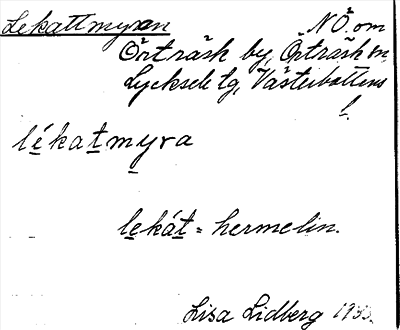 Lekattmyran NÖ. om
Örträsk by, Örträsk sn,
Lycksele tg, Västerbottens
l.
lékatmyra
lekát = hermelin.
Lisa Lidberg